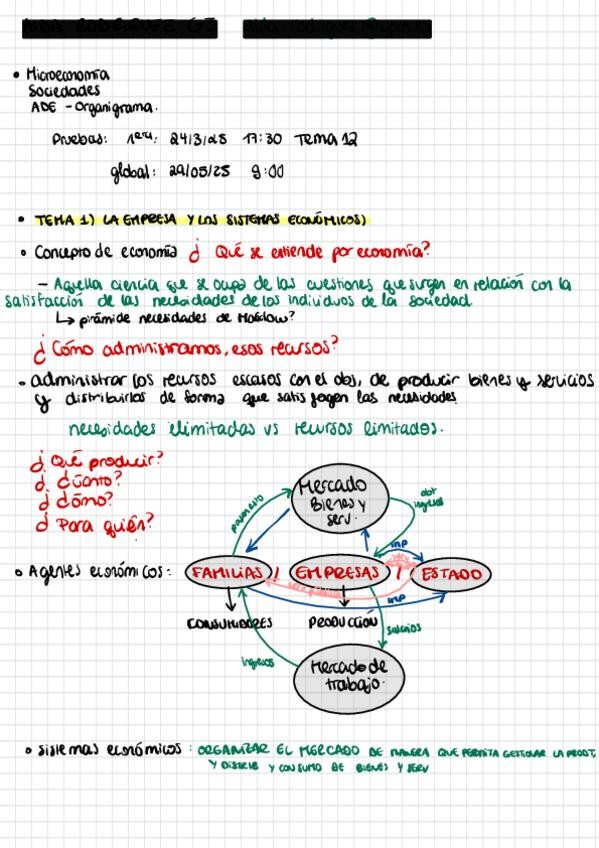 • Microeconomía
Sociedades
ADE - Organigrama.
Pruebas: 1era: 24/3/25 17:30 Tema 12
global: 29/05/25 9:00
• TEMA 1) LA EMPRESA Y LOS SISTEMAS ECONÓMICOS)
• Concepto de economía ¿ Qué se entiende por economía?
- Aquella ciencia que se ocupa de las cuestiones que surgen en relación con la
satisfacción de las necesidades de los individuos de la sociedad
↳ pirámide necesidades de Maslow?
¿Cómo administramos, esos recursos?
• administrar los recursos escasos con el obj. de producir bienes y servicios
y distribuirlos de forma que satisfagen las necesidades.
necesidades ilimitadas vs recursos limitados.
¿Qué producir?
¿ Cuánto?
¿ Cómo?
¿ Para quién?
Mercado
Bienes y
serv.
ingresos
imp
• Agentes económicos: FAMILIAS / EMPRESAS / ESTADO
imp
CONSUMIDORES PRODUCCIÓN salarios
ingresos
Mercado de
trabajo.
• Sistemas económicos: ORGANIZAR EL MERCADO DE MANERA QUE PERMITA GESTIONAR LA PRODT,
Y DISTRIB Y CONSUMO DE BIENES Y SERV